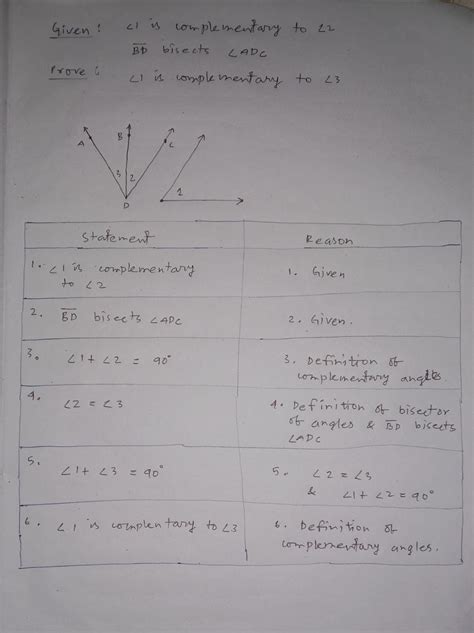 Given : ∠1 is complementary to ∠2
BD bisects ∠ADC
Prove : ∠1 is complementary to ∠3
A B C
3 2 1
D
Statement Reason
1. ∠1 is complementary to ∠2
1. Given
2. BD bisects ∠ADC
2. Given.
3. ∠1 + ∠2 = 90°
3. Definition of
complementary angles.
4. ∠2 = ∠3
4. Definition of bisector
of angles & BD bisects
∠ADC
5. ∠1 + ∠3 = 90°
5. ∠2 = ∠3
& ∠1 + ∠2 = 90°
6. ∠1 is complentary to ∠3
6. Definition of
complementary angles.